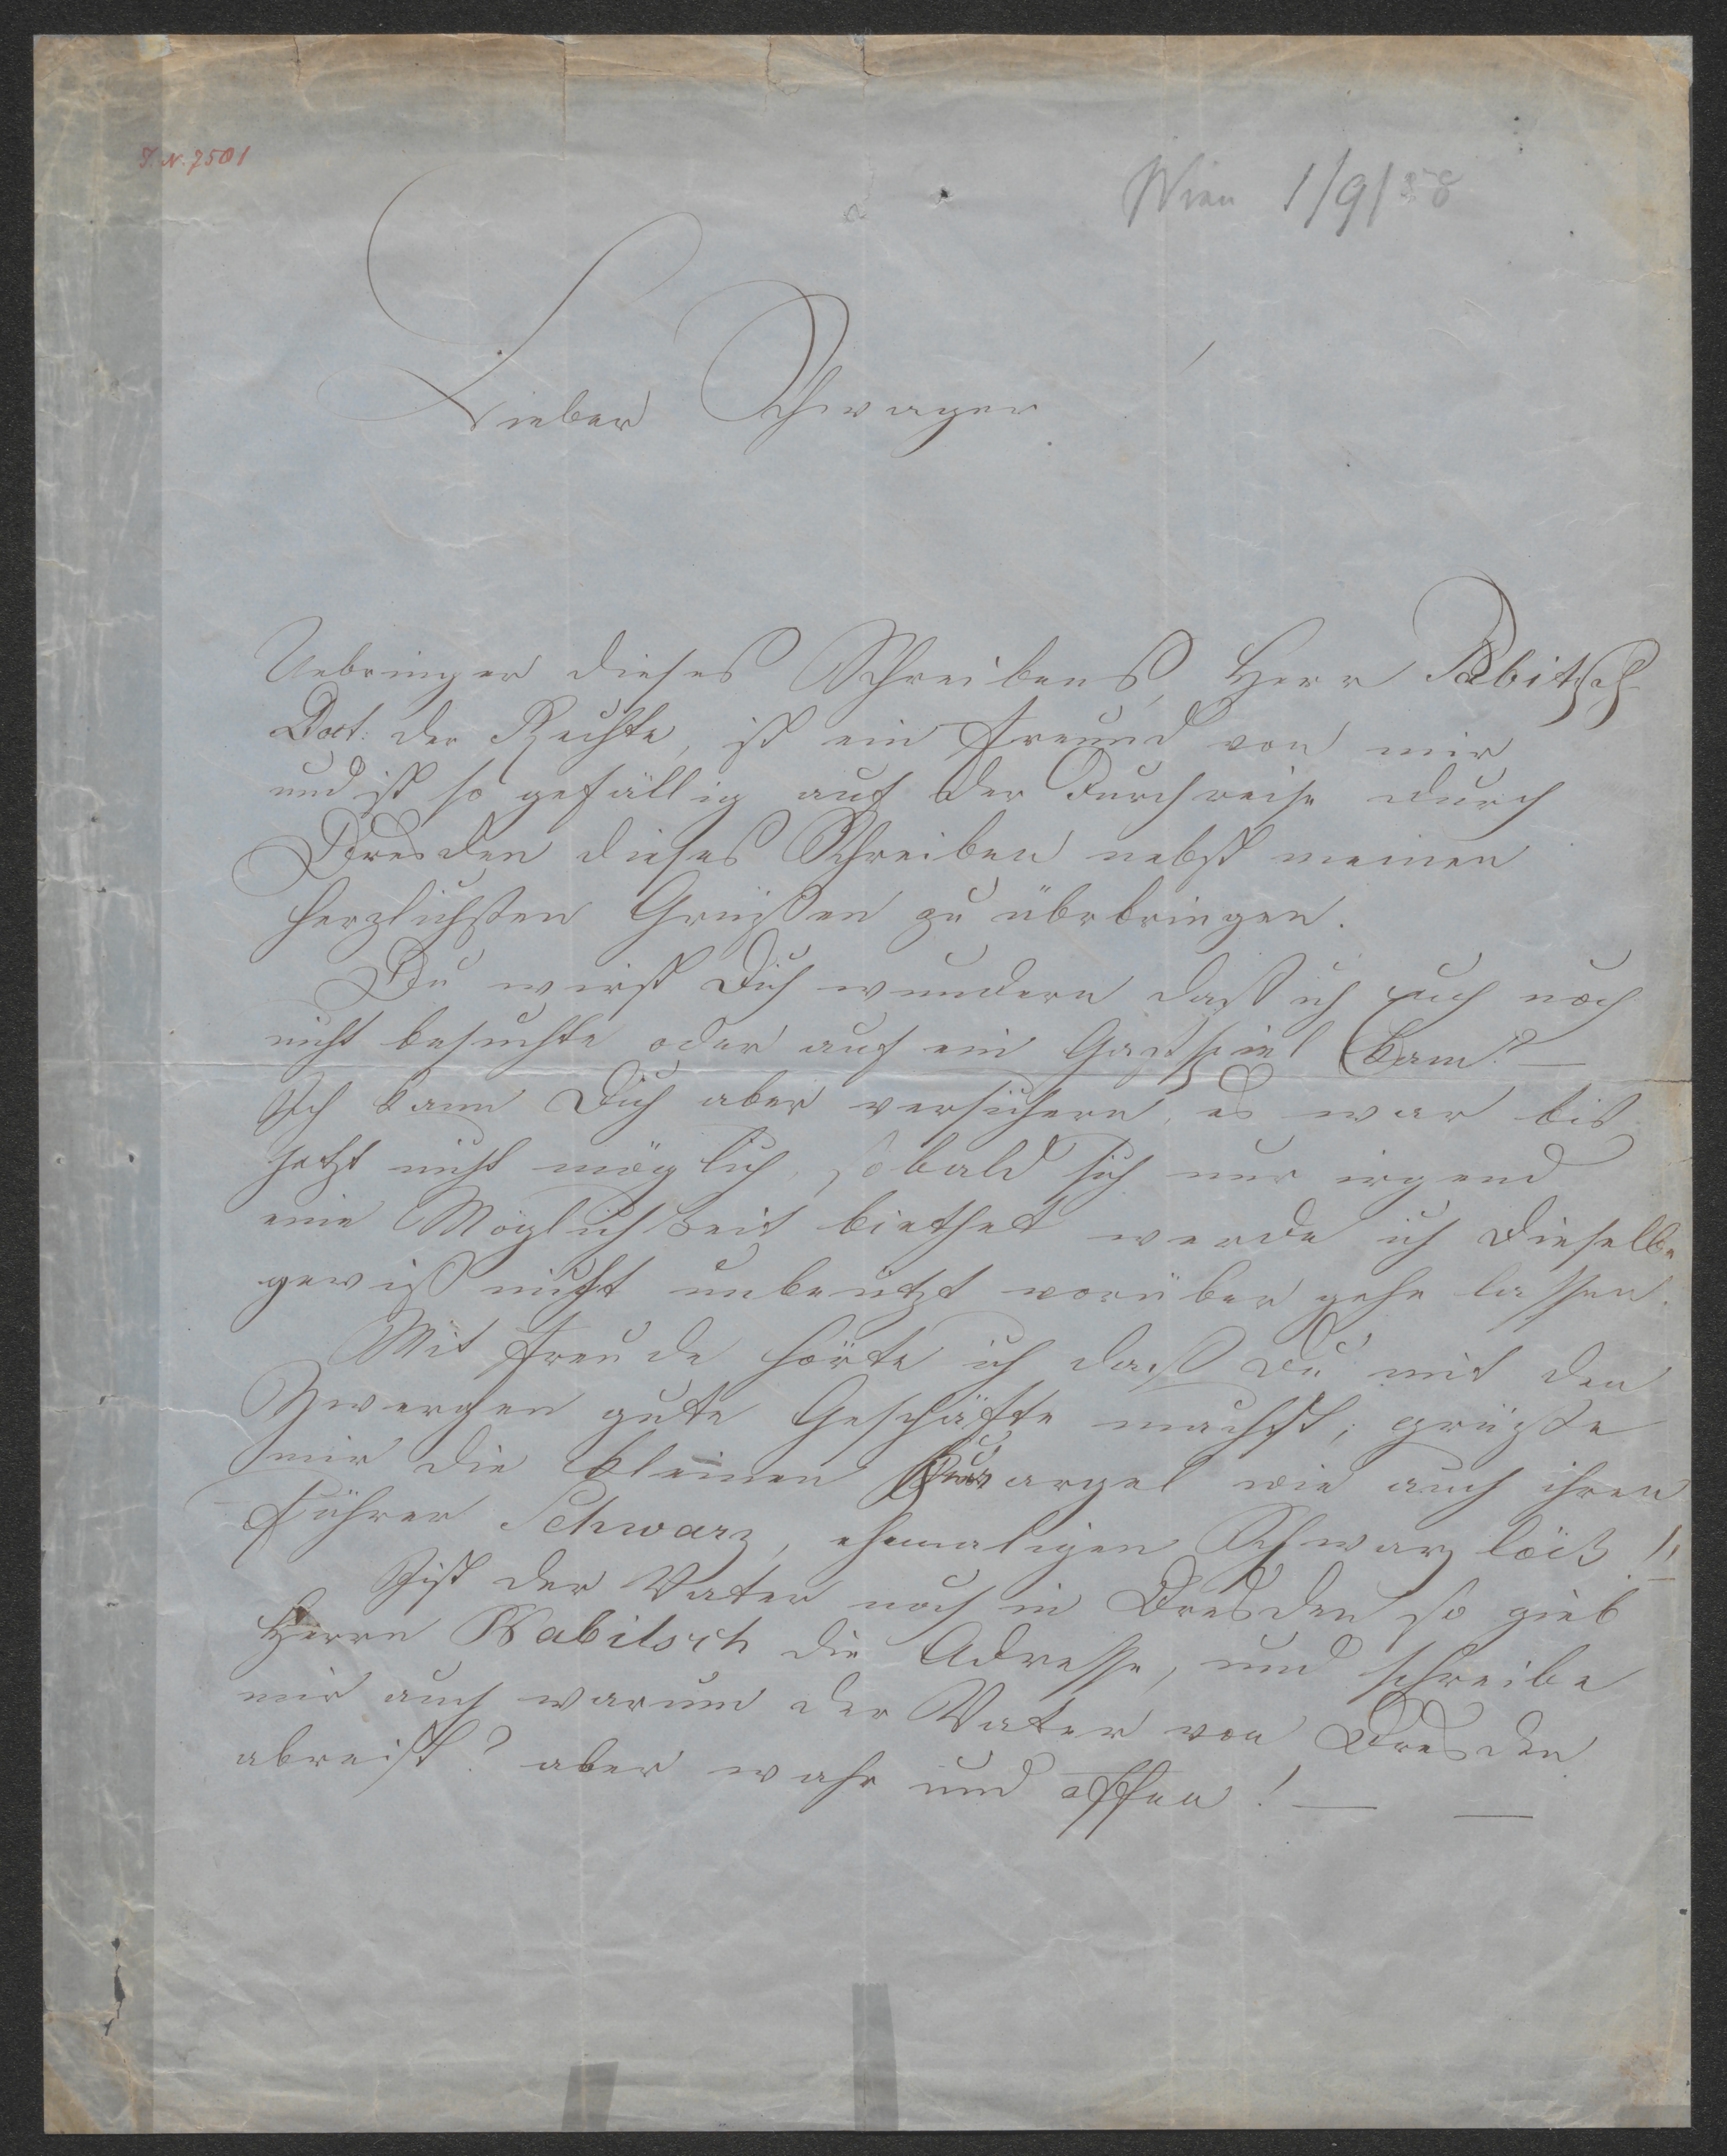 I.N. 7501
Wien 1/9/58
Lieber Schwager
Uebringer dieses Schreibens, Herr Babitsch
Doct: der Rechte, ist ein Freund von mir
und ist so gefällig auf der Durchreise durch
Dresden dieses Schreiben nebst meinen
herzlichsten Grüßen zu übrbringen.
Du wirst Dich wundern daß ich euch noch
nicht besuchte oder auf ein Gastspiel kam? —
Ich kann Dich aber versichern, es war bis
jetzt nicht möglich, sobald sich nur irgend
eine Möglichkeit biethet werde ich dieselbe
gewiß nicht unbenützt vorüber gehe lassen.
Mit Freude hörte ich daß Du mit den
Zwergen gute Geschäfte machst; grüße
mir die kleinen wie auch ihren
Führer Schwarz, ehemaligen !!
Ist der Vater noch in Dresden so gieb
Herrn Babitsch die Adresse, und schreibe
mir auch warum der Vater von Dresden
abreist? aber wahr und offen! — —